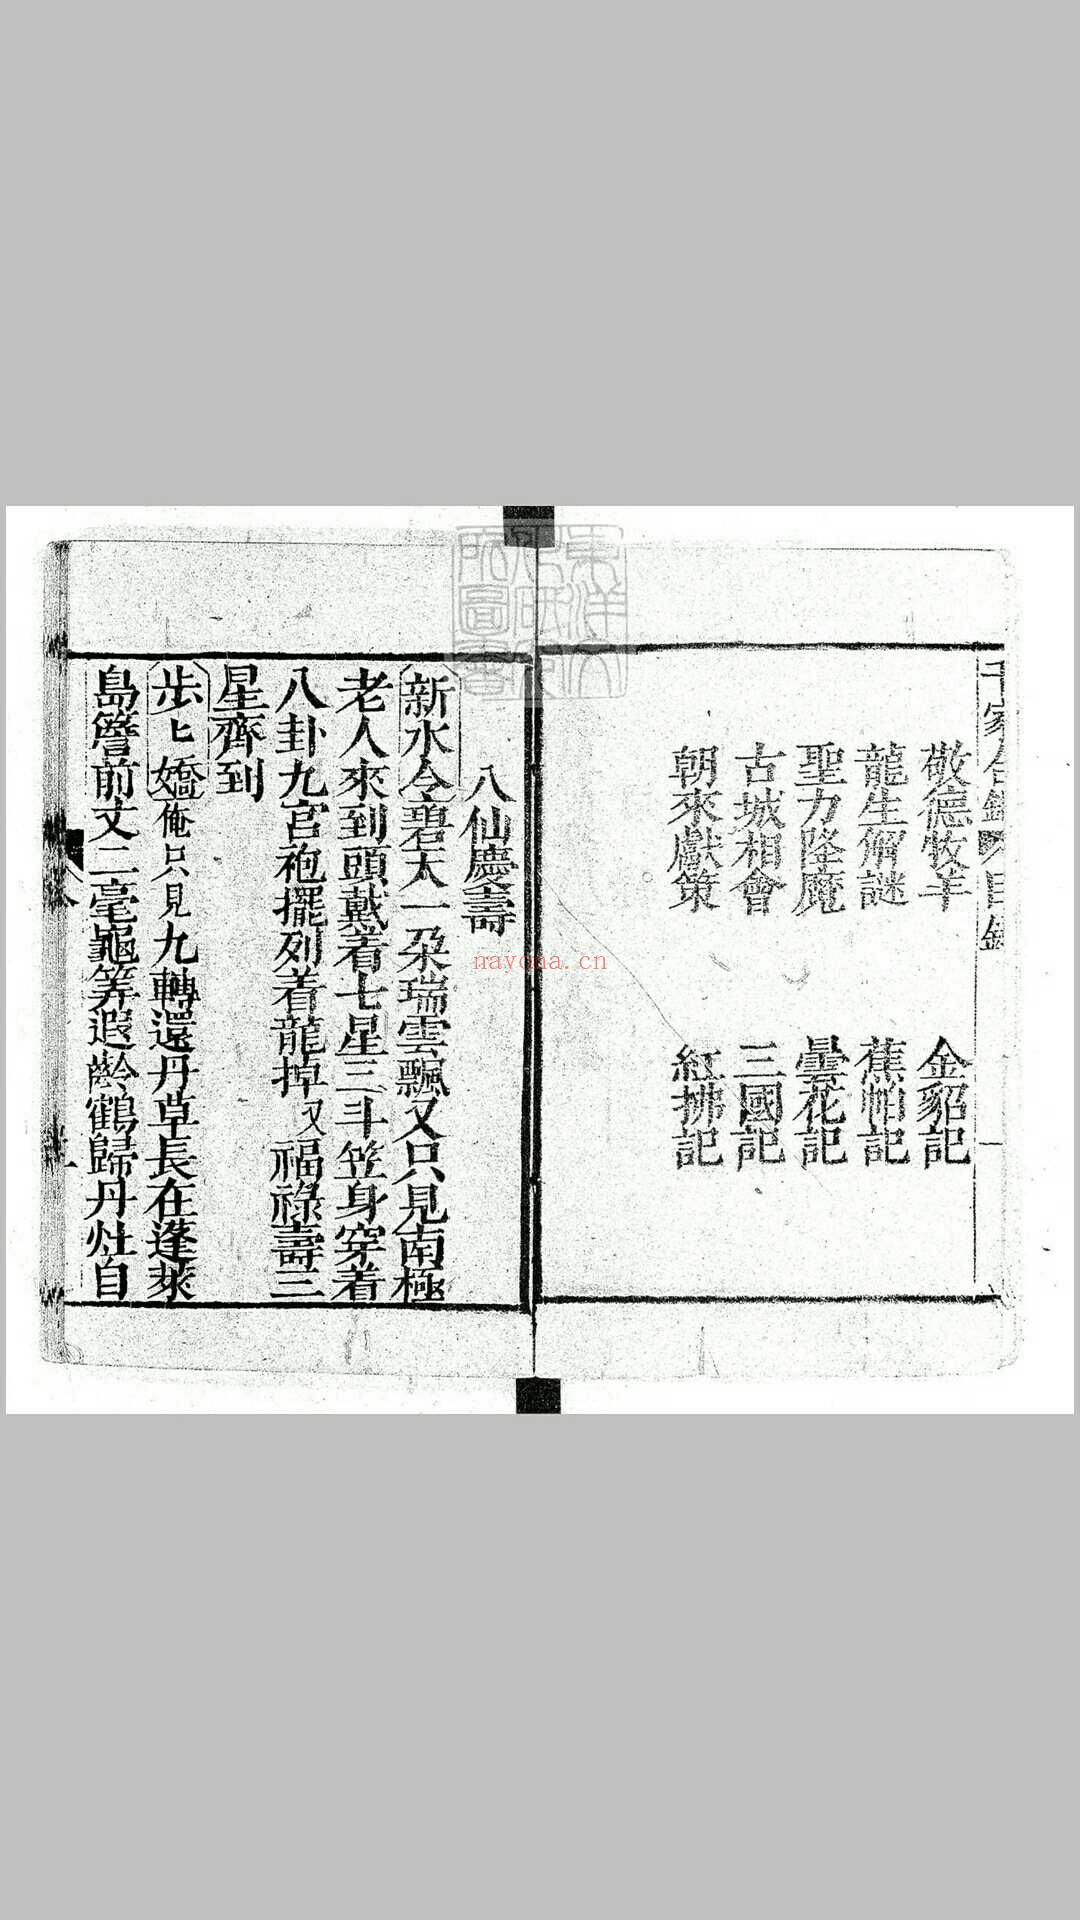 千家合錦 目錄
敬德牧羊 金貂記
龍生觧謎 蕉帕記
聖力降魔 曇花記
古城相會 三國記
朝來獻策 紅拂記
一
八仙慶壽
新水令碧天一朶瑞雲飄又只見南極
老人來到頭戴着七星三斗笠身穿着
八卦九宮袍擺列着龍掉又福祿壽三
星齊到
步步嬌俺只見九轉還丹草長在蓬萊
島簷前丈二毫龜筭遐齡鶴歸丹灶自
一
nayona.cn